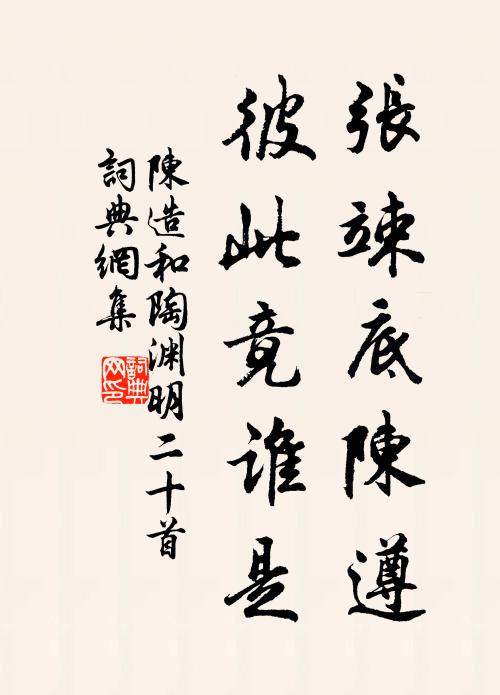 張竦底陳遵
彼此竟誰是
陳造和陶淵明二十首
詞典網集
詞典網印